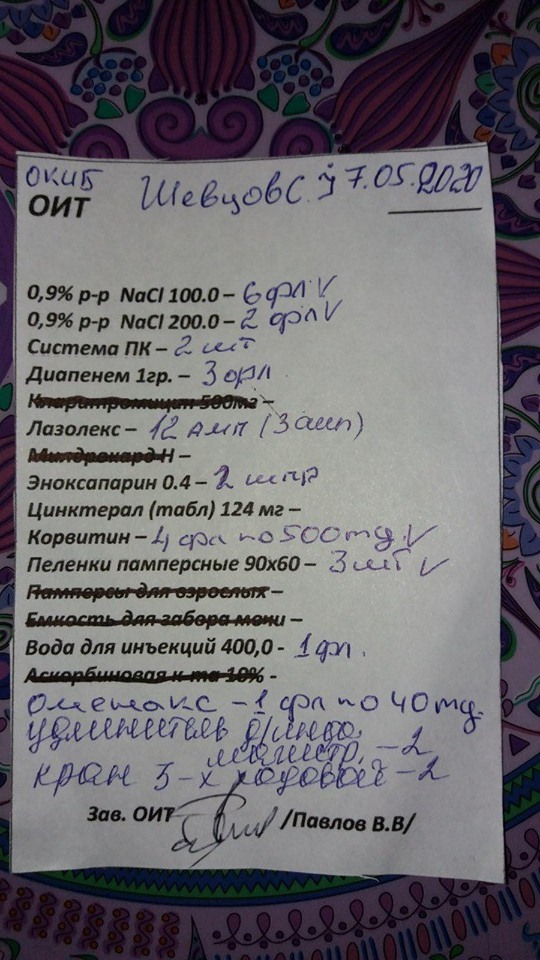 ОКИБ Шевцов С. 7.05.2020
ОИТ
0,9% р-р NaCl 100.0 – 6 фл V
0,9% р-р NaCl 200.0 – 2 фл V
Система ПК – 2 шт
Диапенем 1гр. – 3 фл
Кларитромицин 500мг –
Лазолекс – 12 амп (3 амп)
Милдрокард-Н –
Эноксапарин 0.4 – 2 шпр
Цинктерал (табл) 124 мг –
Корвитин – 4 фл по 500mg. V
Пеленки памперсные 90х60 – 3 шт V
Памперсы для взрослых –
Емкость для забора мочи –
Вода для инъекций 400,0 - 1 фл.
Аскорбиновая к-та 10% -
Ометакс – 1 фл по 40mg.
удлинитель д/инфо
магистр. – 2
кран 3-х ходовой – 2
Зав. ОИТ /Павлов В.В/